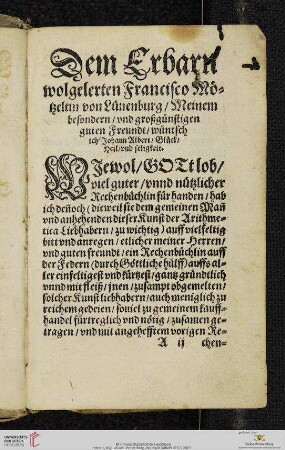 Dem Erbarn
wolgelerten Francisco Mö-
tzeltin von Lünenburg / Meinem
besondern / vnd großgünstigen
guten Freundt / wüntsch
ich / Johann Albert / Glück /
Heil / vnd seligkeit.
WJewol / GOTT lob /
viel guter / vnnd nützlicher
Rechenbüchlin fürhanden / hab
ich deñoch (dieweil sie dem gemeinen Mañ
vnd anhebenden dieser Kunst der Arithme-
tica Liebhabern / zu wichtig) auff vielfeltig
bitt vnd anregen / etlicher meiner Herren /
vnd guten freundt / ein Rechenbüchlin auff
der Federn (durch Göttliche hülff) auffs al-
ler einfeltigest vnd kürtzest / gantz gründtlich
vnnd mit fleiß / jnen / zusampt obgemelten /
solcher Kunst liebhabern / auch meniglich zu
reichem gedeien / soviel zu gemeinem kauff-
handel fürtreglich vnd nötig / zusamen ge-
tragen / vnd mit angehefftem vorigen Re-
A ij chen-